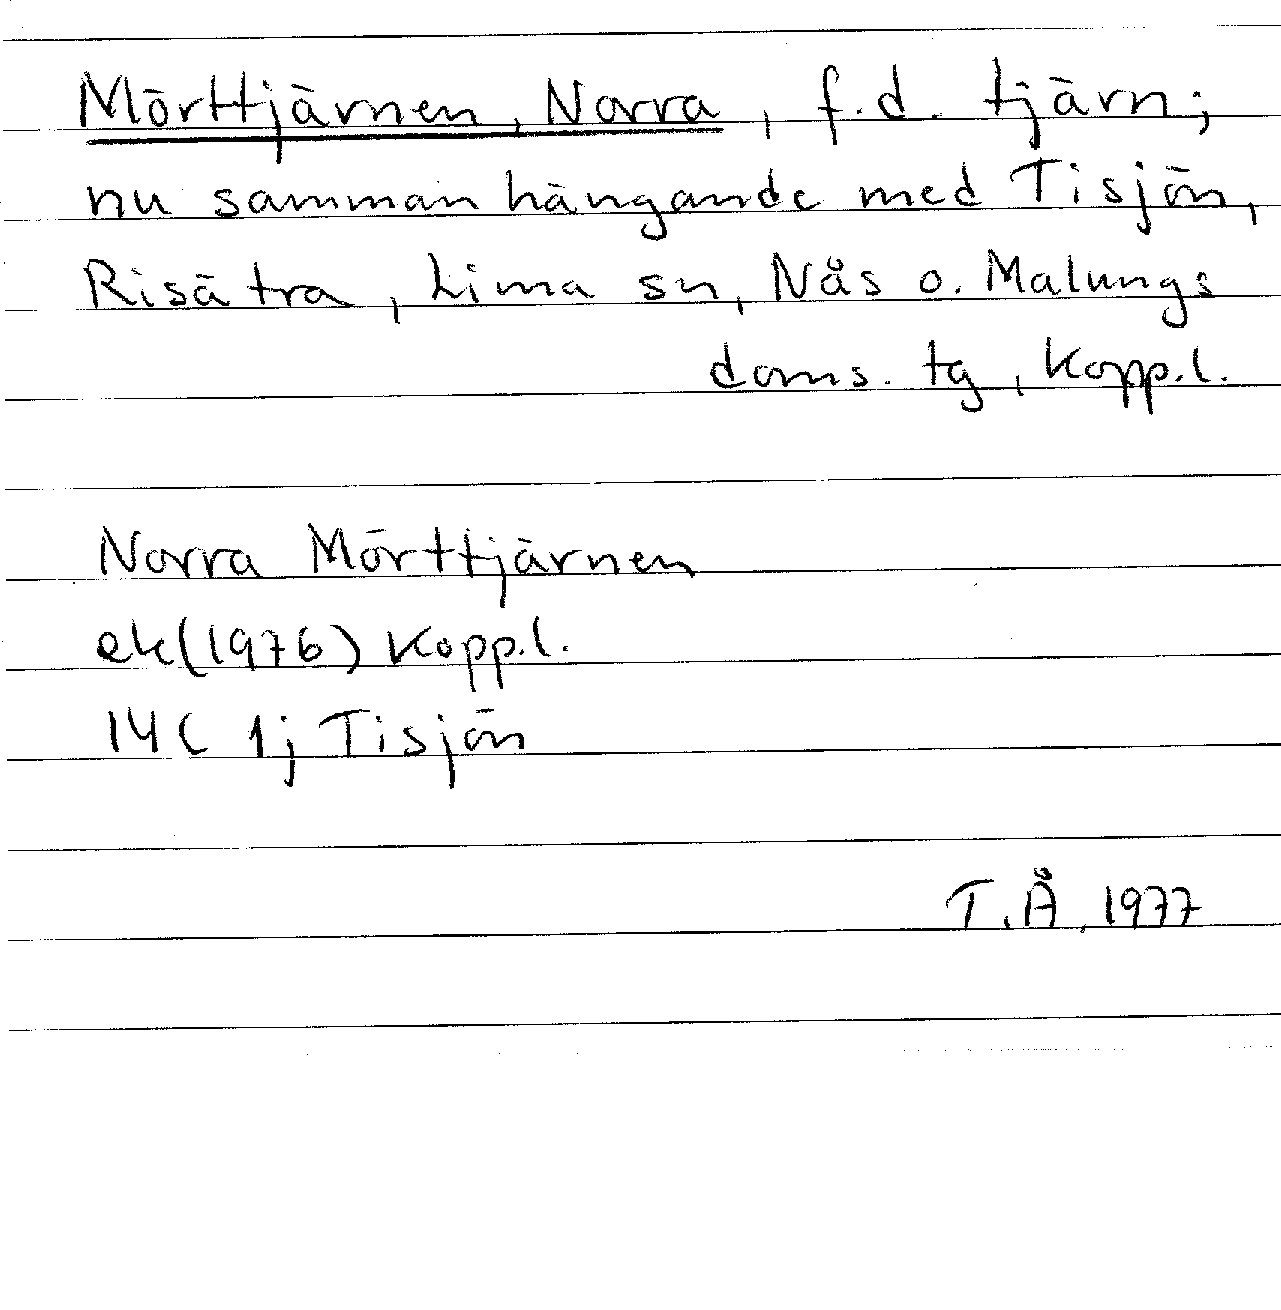 Mörttjärnen, Norra, f.d. tjärn;
nu sammanhängande med Tisjön,
Risätra, Lima sn, Nås o. Malungs
doms. tg, Kopp.l.
Norra Mörttjärnen
ek(1976) Kopp.l.
14C 1j Tisjön
T.Å, 1977